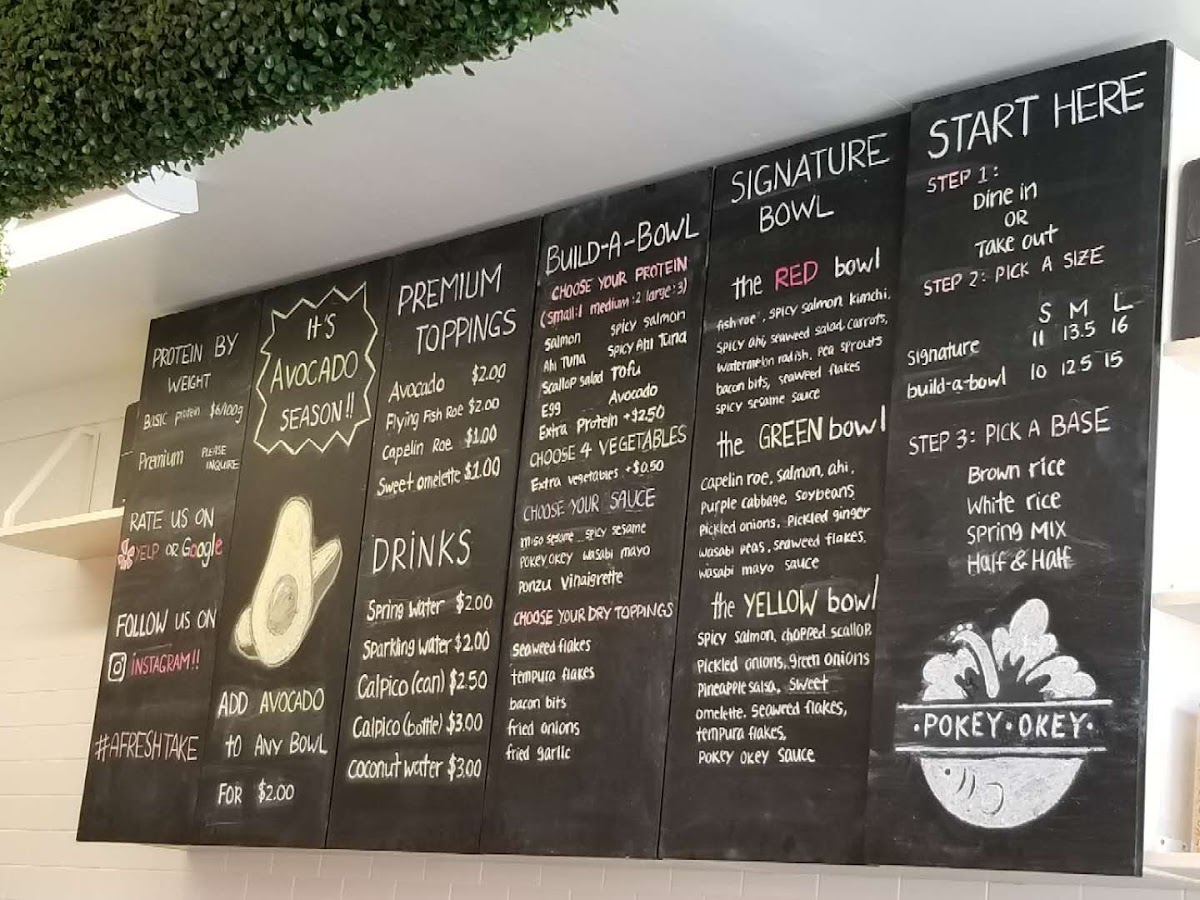 PROTEIN BY
WEIGHT
BASIC protein $6/100g
Premium PLEASE
INQUIRE
RATE US ON
YELP OR Google
FOLLOW US ON
INSTAGRAM!!
#AFRESHTAKE
IT'S
AVOCADO
SEASON!!
ADD AVOCADO
to ANY BOWL
FOR $2.00
PREMIUM
TOPPINGS
Avocado $2.00
Flying Fish Roe $2.00
Capelin Roe $1.00
Sweet omelette $1.00
DRINKS
Spring Water $2.00
Sparkling Water $2.00
Calpico (can) $2.50
Calpico (bottle) $3.00
coconut water $3.00
BUILD-A-BOWL
CHOOSE YOUR PROTEIN
(small:1 medium:2 large:3)
salmon spicy salmon
Ahi Tuna Spicy Ahi Tuna
Scallop salad Tofu
Egg Avocado
Extra Protein +$2.50
CHOOSE 4 VEGETABLES
Extra vegetables +$0.50
CHOOSE YOUR SAUCE
miso sesame spicy sesame
POKEY OKEY wasabi mayo
Ponzu vinaigrette
CHOOSE YOUR DRY TOPPINGS
seaweed flakes
tempura flakes
bacon bits
fried onions
fried garlic
SIGNATURE
BOWL
the RED bowl
fish roe, spicy salmon kimchi,
spicy ahi, seaweed salad, carrots,
watermelon radish, pea sprouts
bacon bits, seaweed flakes
spicy sesame sauce
the GREEN bowl
capelin roe, salmon, ahi,
purple cabbage, soybeans
pickled onions, pickled ginger
wasabi peas, seaweed flakes,
wasabi mayo sauce
the YELLOW bowl
spicy salmon, chopped scallop,
Pickled onions, green onions
Pineapple salsa, sweet
omelette, seaweed flakes,
tempura flakes,
POKEY OKEY sauce
START HERE
STEP 1:
Dine in
OR
Take out
STEP 2: PICK A SIZE
S M L
signature 11 13.5 16
build-a-bowl 10 12.5 15
STEP 3: PICK A BASE
Brown rice
White rice
Spring MIX
Half & Half
·POKEY·OKEY·